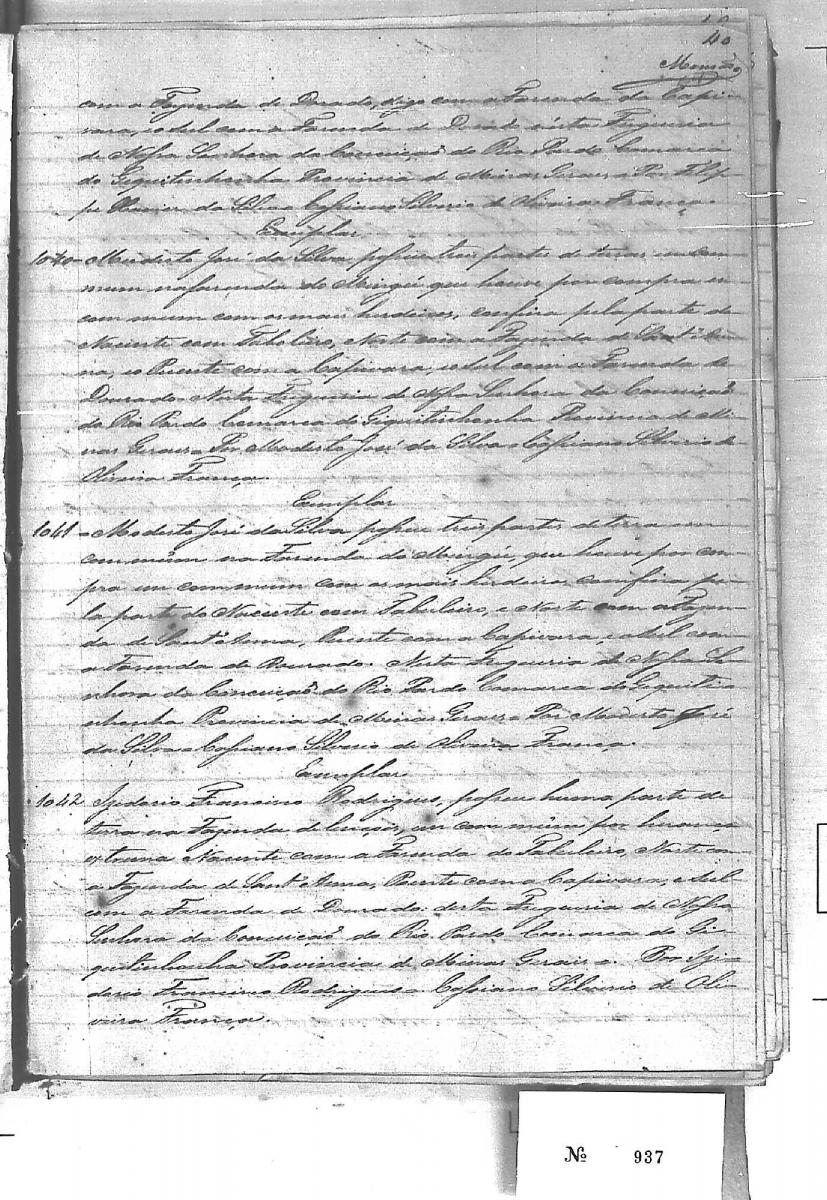 40
com a Fazenda de Dourado, digo com a Fazenda da Capi-
vara, e o Sul com a Fazenda de Dourado nésta Freguesia
de Nossa Senhora da Conceição do Rio Pardo Comarca
do Giquitinhonha Provincia de Minas Geraes Por Felip-
pe da Silva Cassiano Silverio de Oliveira França.
Exemplar
1040 Modesto José da Silva possue tres partes de terras em com-
mum na fazenda do que houve por compra em
com mum com os mais herdeiros, confina pela parte do
Nacente com Taboleiro, Norte com a Fazenda de Santa An-
na, e o Puente com a Capivara, e o Sul com a Fazenda de
Dourado Nesta Freguesia de Nossa Senhora da Conceição
do Rio Pardo Comarca de Giquitinhonha Provincia de Mi-
nas Geraes Por Modesto José da Silva Cassiano Silverio de
Oliveira França.
Exemplar
1041 Modesto José da Silva possue tres partes de terra em
commum na Fazenda do que houve por com-
pra em commum com os mais herdeiros, confina pe-
la parte do Nacente com Tabuleiro, e Norte com a Fazen-
da de Sant'Anna, Puente com a Capivara, e o Sul com
a Fazenda de Dourado. Nesta Freguesia de Nossa Se-
nhora da Conceição do Rio Pardo Comarca do Giquiti-
nhonha Provincia de Minas Geraes Por Modesto José
da Silva Cassiano Silverio de Oliveira França.
Exemplar
1042 Izidorio Francino Rodrigues, possue huma parte de
terra na Fazenda de em com mum por herança
extrema Nacente com a Fazenda do Tabuleiro, Norte com
a Fazenda de Sant'Anna, Puente com a Capivara, e o Sul
com a Fazenda de Dourado desta Freguesia de Nossa
Senhora da Conceição do Rio Pardo Comarca do Gi-
quitinhonha Provincia de Minas Geraes. Por Izi-
dorio Francino Rodrigues Cassiano Silverio de Oli-
veira França.
№ 937